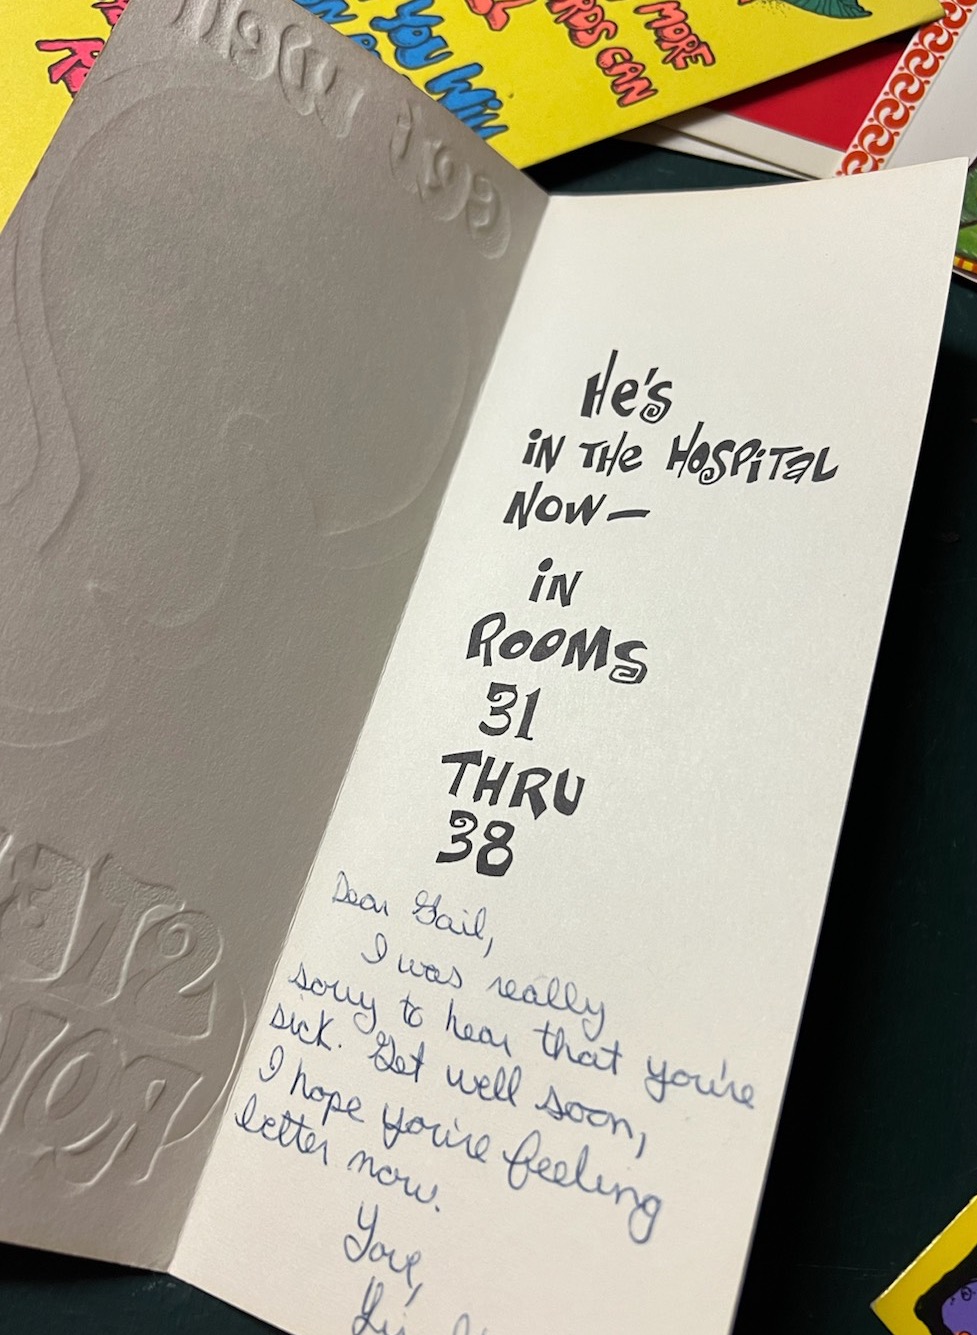 MORE
CAN
YOU WIN
He's
iN THe HOSPiTaL
NOW—
iN
ROOMS
31
THRU
38
Dear Gail,
I was really
sorry to hear that you're
sick. Get well soon,
I hope you're feeling
better now.